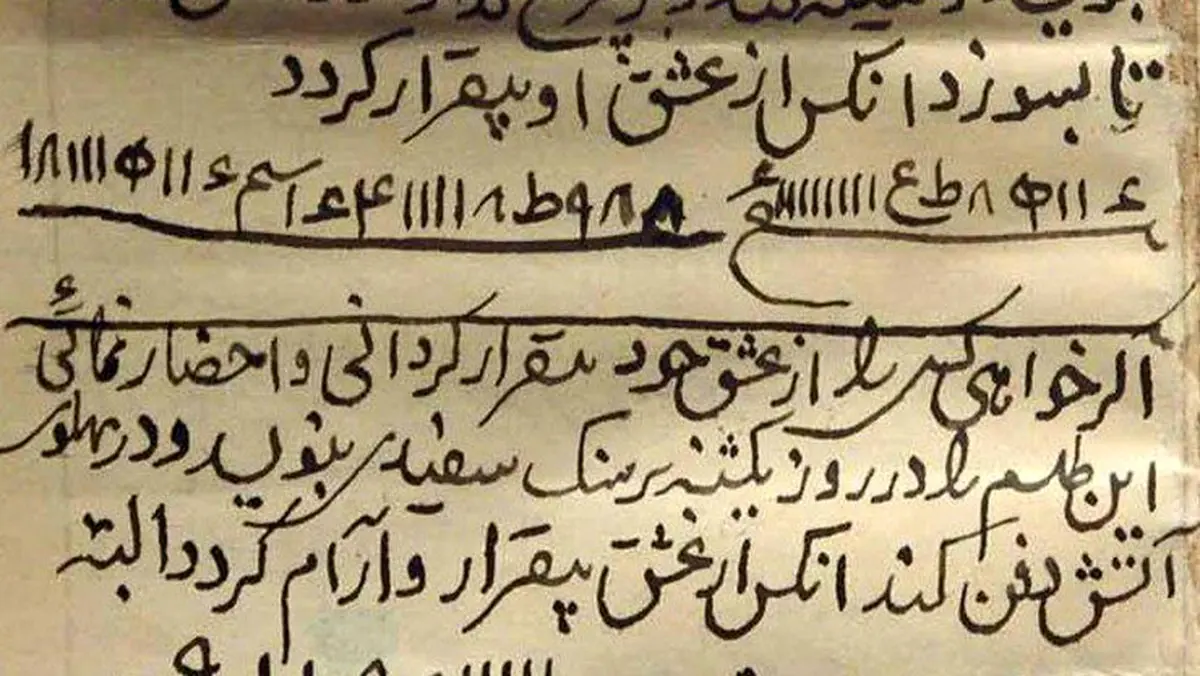 تا بسوزد انکس از عشق او بیقرار کردد
ء ۱۱ ۸ ط ع ۱۱۱۱۱۱۱۱
۸ ۹ ط ۸ ۱۱۱۱ ۴ ء اسم ء ۱۱ ۱۱۱ ۸ ۱
اکر خواهی کسی را از عشق خود بیقرار کردانی و احضار نمائی
این طلسم را در روز یکشنبه بر سنک سفیدی بنویسد و در پهلوی
آتش دفن کند انکس از عشق بیقرار و آرام کردد البته